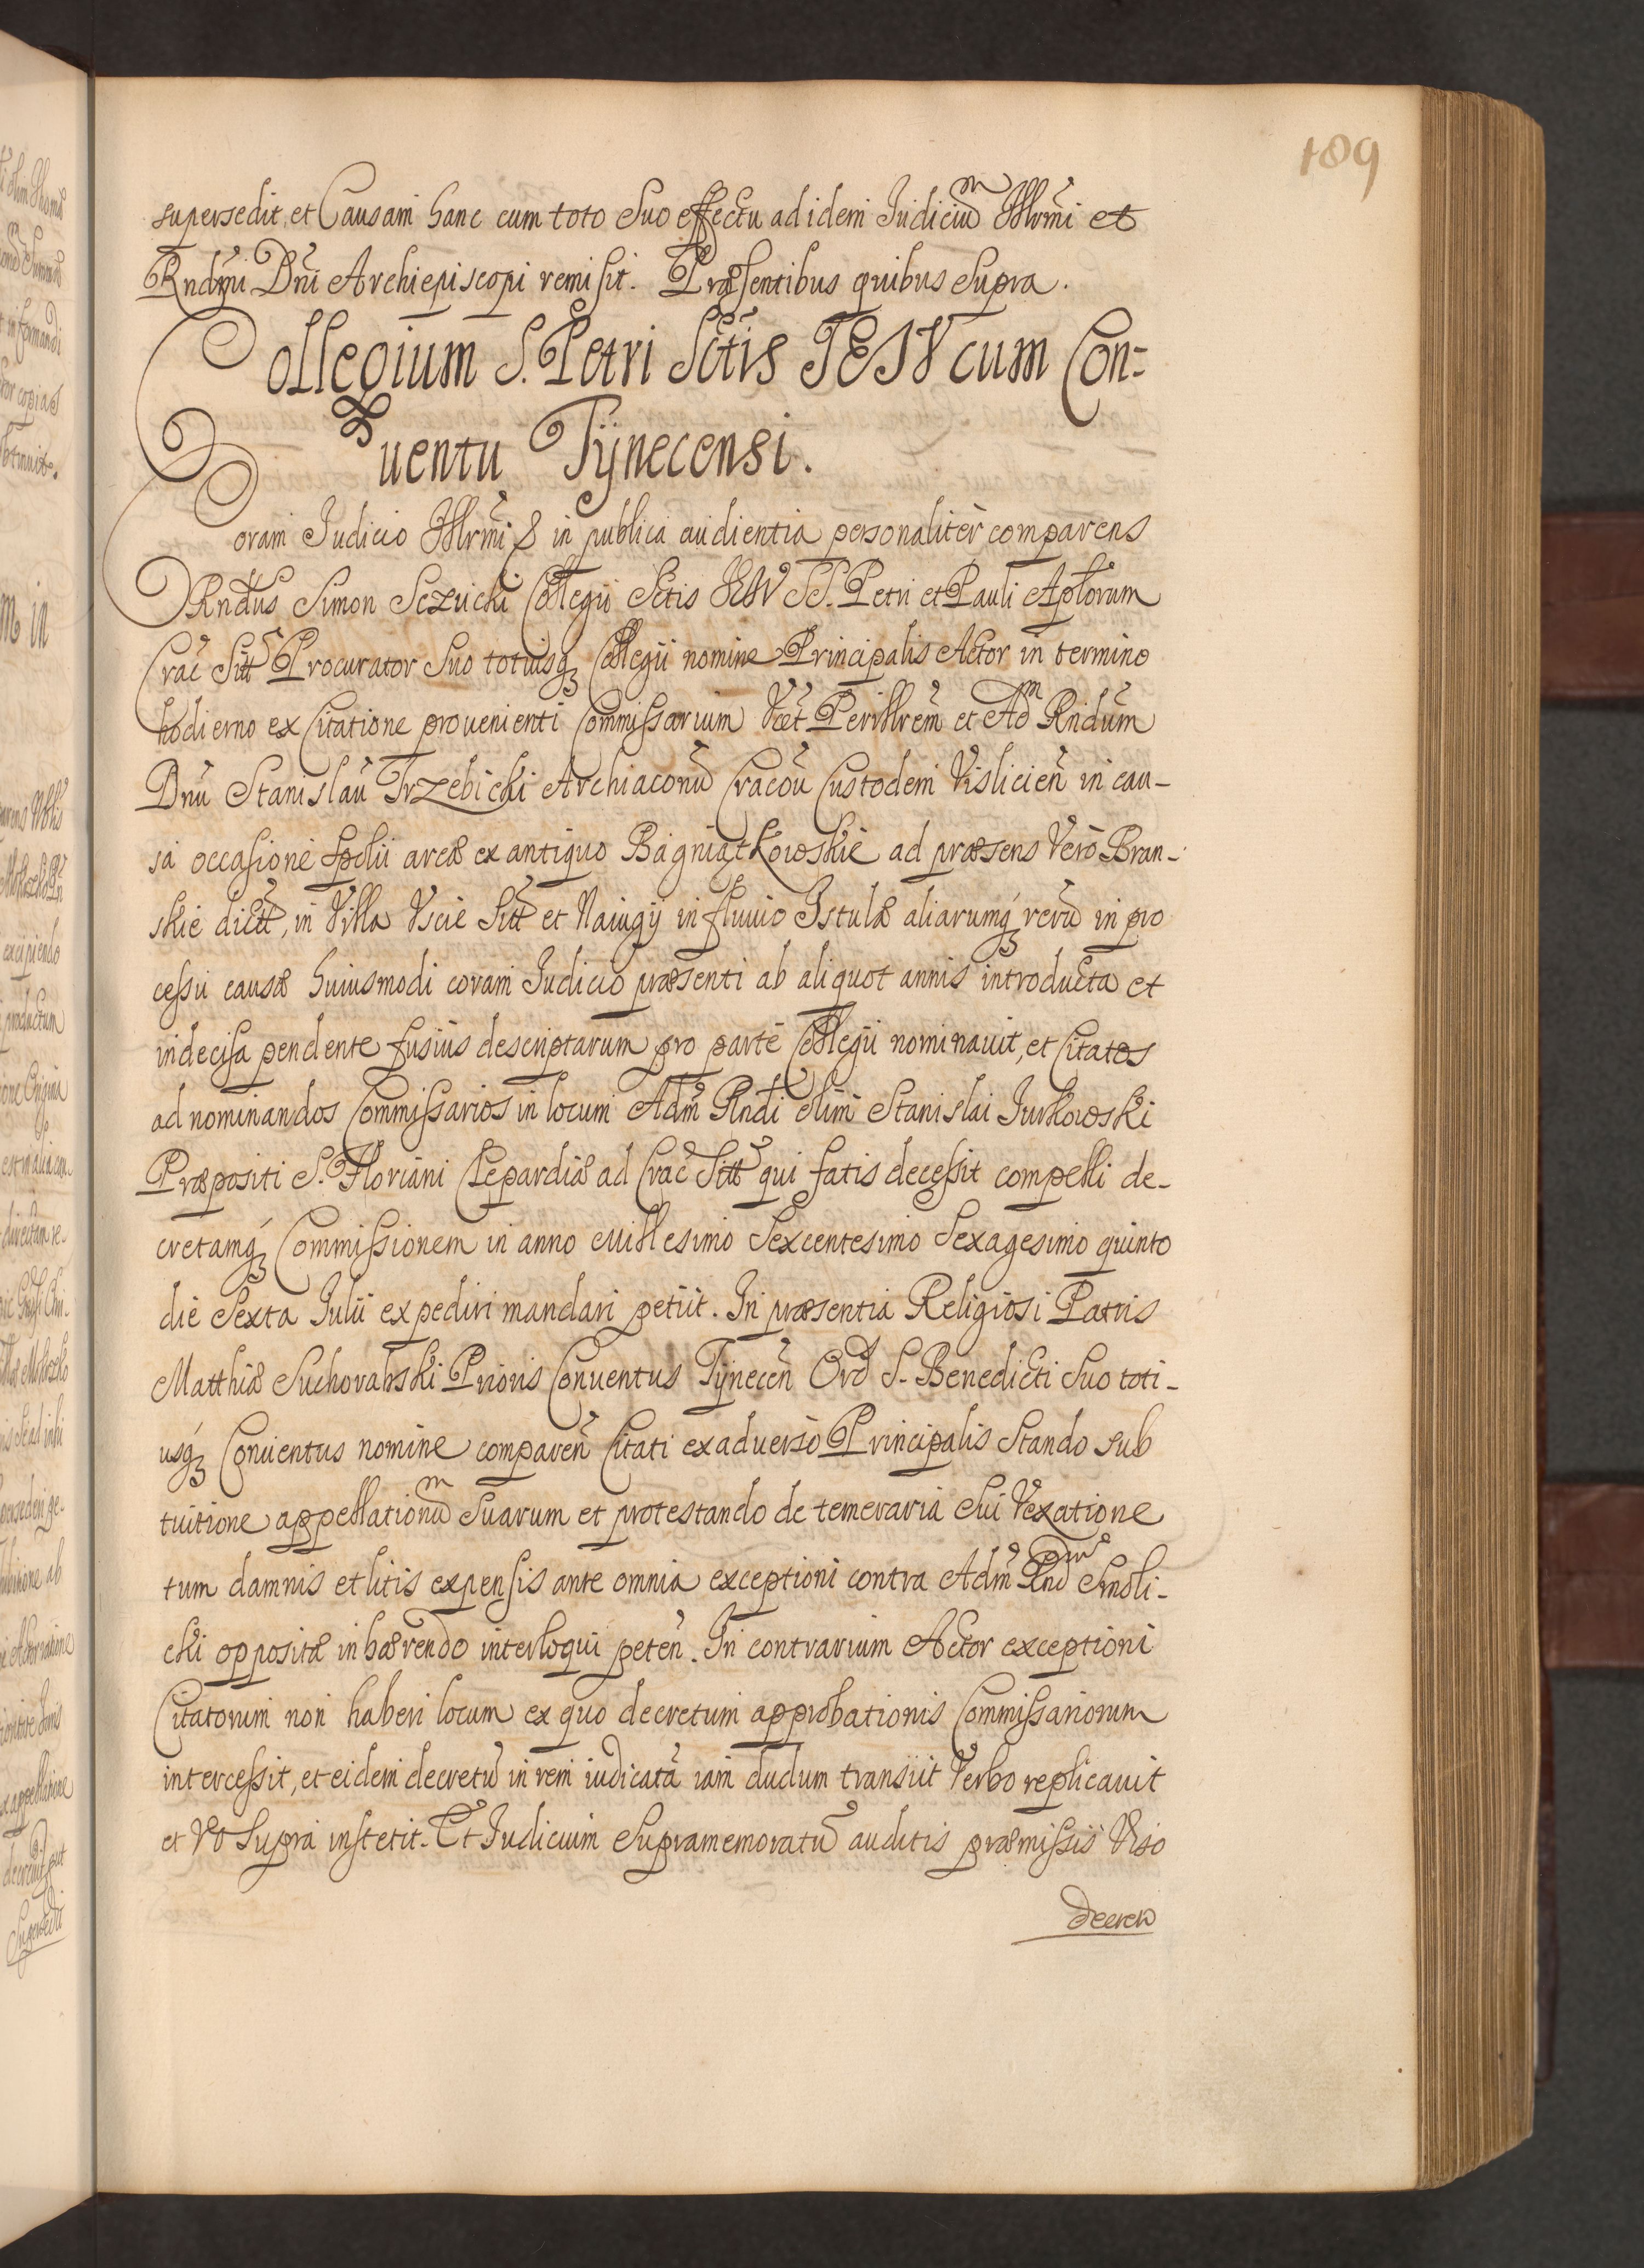 189
supersedit, et Causam hanc cum toto Suo effectu ad idem Iudiciũm Illrmi et
Rndmi Dni Archiepiscopi remisit. Præsentibus quibus Supra.
Collegium S. Petri Sctis IESV cum Con-
uentu Tÿnecensi.
Coram Judicio Illrmi & in publica audientia personaliter comparens
Rndus Simon Sczucki Collegii Sctis IESV SS. Petri et Pauli Aplorum
Crac Sitt Procurator Suo totiusq₃ Collegii nomine Principalis Actor in termino
hodierno ex Citatione prouenienti Commissarium Vcet Perillrem et Adm Rndum
Dnũ Stanislaũ Trzebicki Archiaconũ Cracoũ Custodem Vislicien̄ in cau-
sa occasione Spolii areæ ex antiquo Bagniątkowskie ad præsens Vero Bran-
skie dictt, in Villa Vscie Sitt et Nawigÿ in fluuio Istulæ aliarumq₃ rerũ in pro
cessu causæ huiusmodi coram Judicio præsenti ab aliquot annis introducta et
indecisa pendente fusius descriptarum pro parte Collegii nominauit, et Citatos
ad nominandos Commissarios in locum Adm Rndi olim Stanislai Jurkowski
Præpositi S. Floriani Clepardiæ ad Crac Sitt qui fatis decessit compelli de-
cretamq₃ Commissionem in anno Millesimo Sexcentesimo Sexagesimo quinto
die Sexta Iulii expediri mandari petiit. In præsentia Religiosi Patris
Matthiæ Suchorabski Prioris Conuentus Tÿnecen̄ Ord S. Benedicti Suo toti-
usq₃ Conuentus nomine comparen̄ Citati ex aduerso Principalis Stando sub
tuitione appellationũm Suarum et protestando de temeraria Sui Vexatione
tum damnis et litis expensis ante omnia exceptioni contra Adm Rnd Dnm Smoli-
cki oppositæ inhærendo interloqui peten̄. In contrarium Actor exceptioni
Citatorum non haberi locum ex quo decretum approbationis Commissariorum
intercessit, et eidem decretũ in rem iudicatã iam dudum transiit Verbo replicauit
et Vt Supra institit. Et Iudicium Supramemoratũ auditis præmissis Viso
decreto